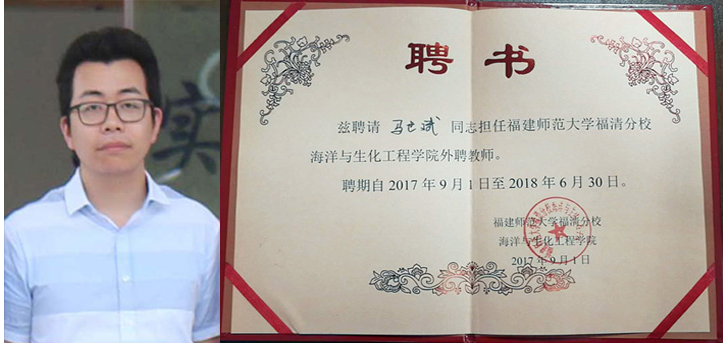 实
聘书
兹聘请 马 斌 同志担任福建师范大学福清分校
海洋与生化工程学院外聘教师。
聘期自 2017 年 9 月 1 日至 2018 年 6 月 30 日。
福建师范大学福清分校
海洋与生化工程学院
2017 年 9 月 1 日